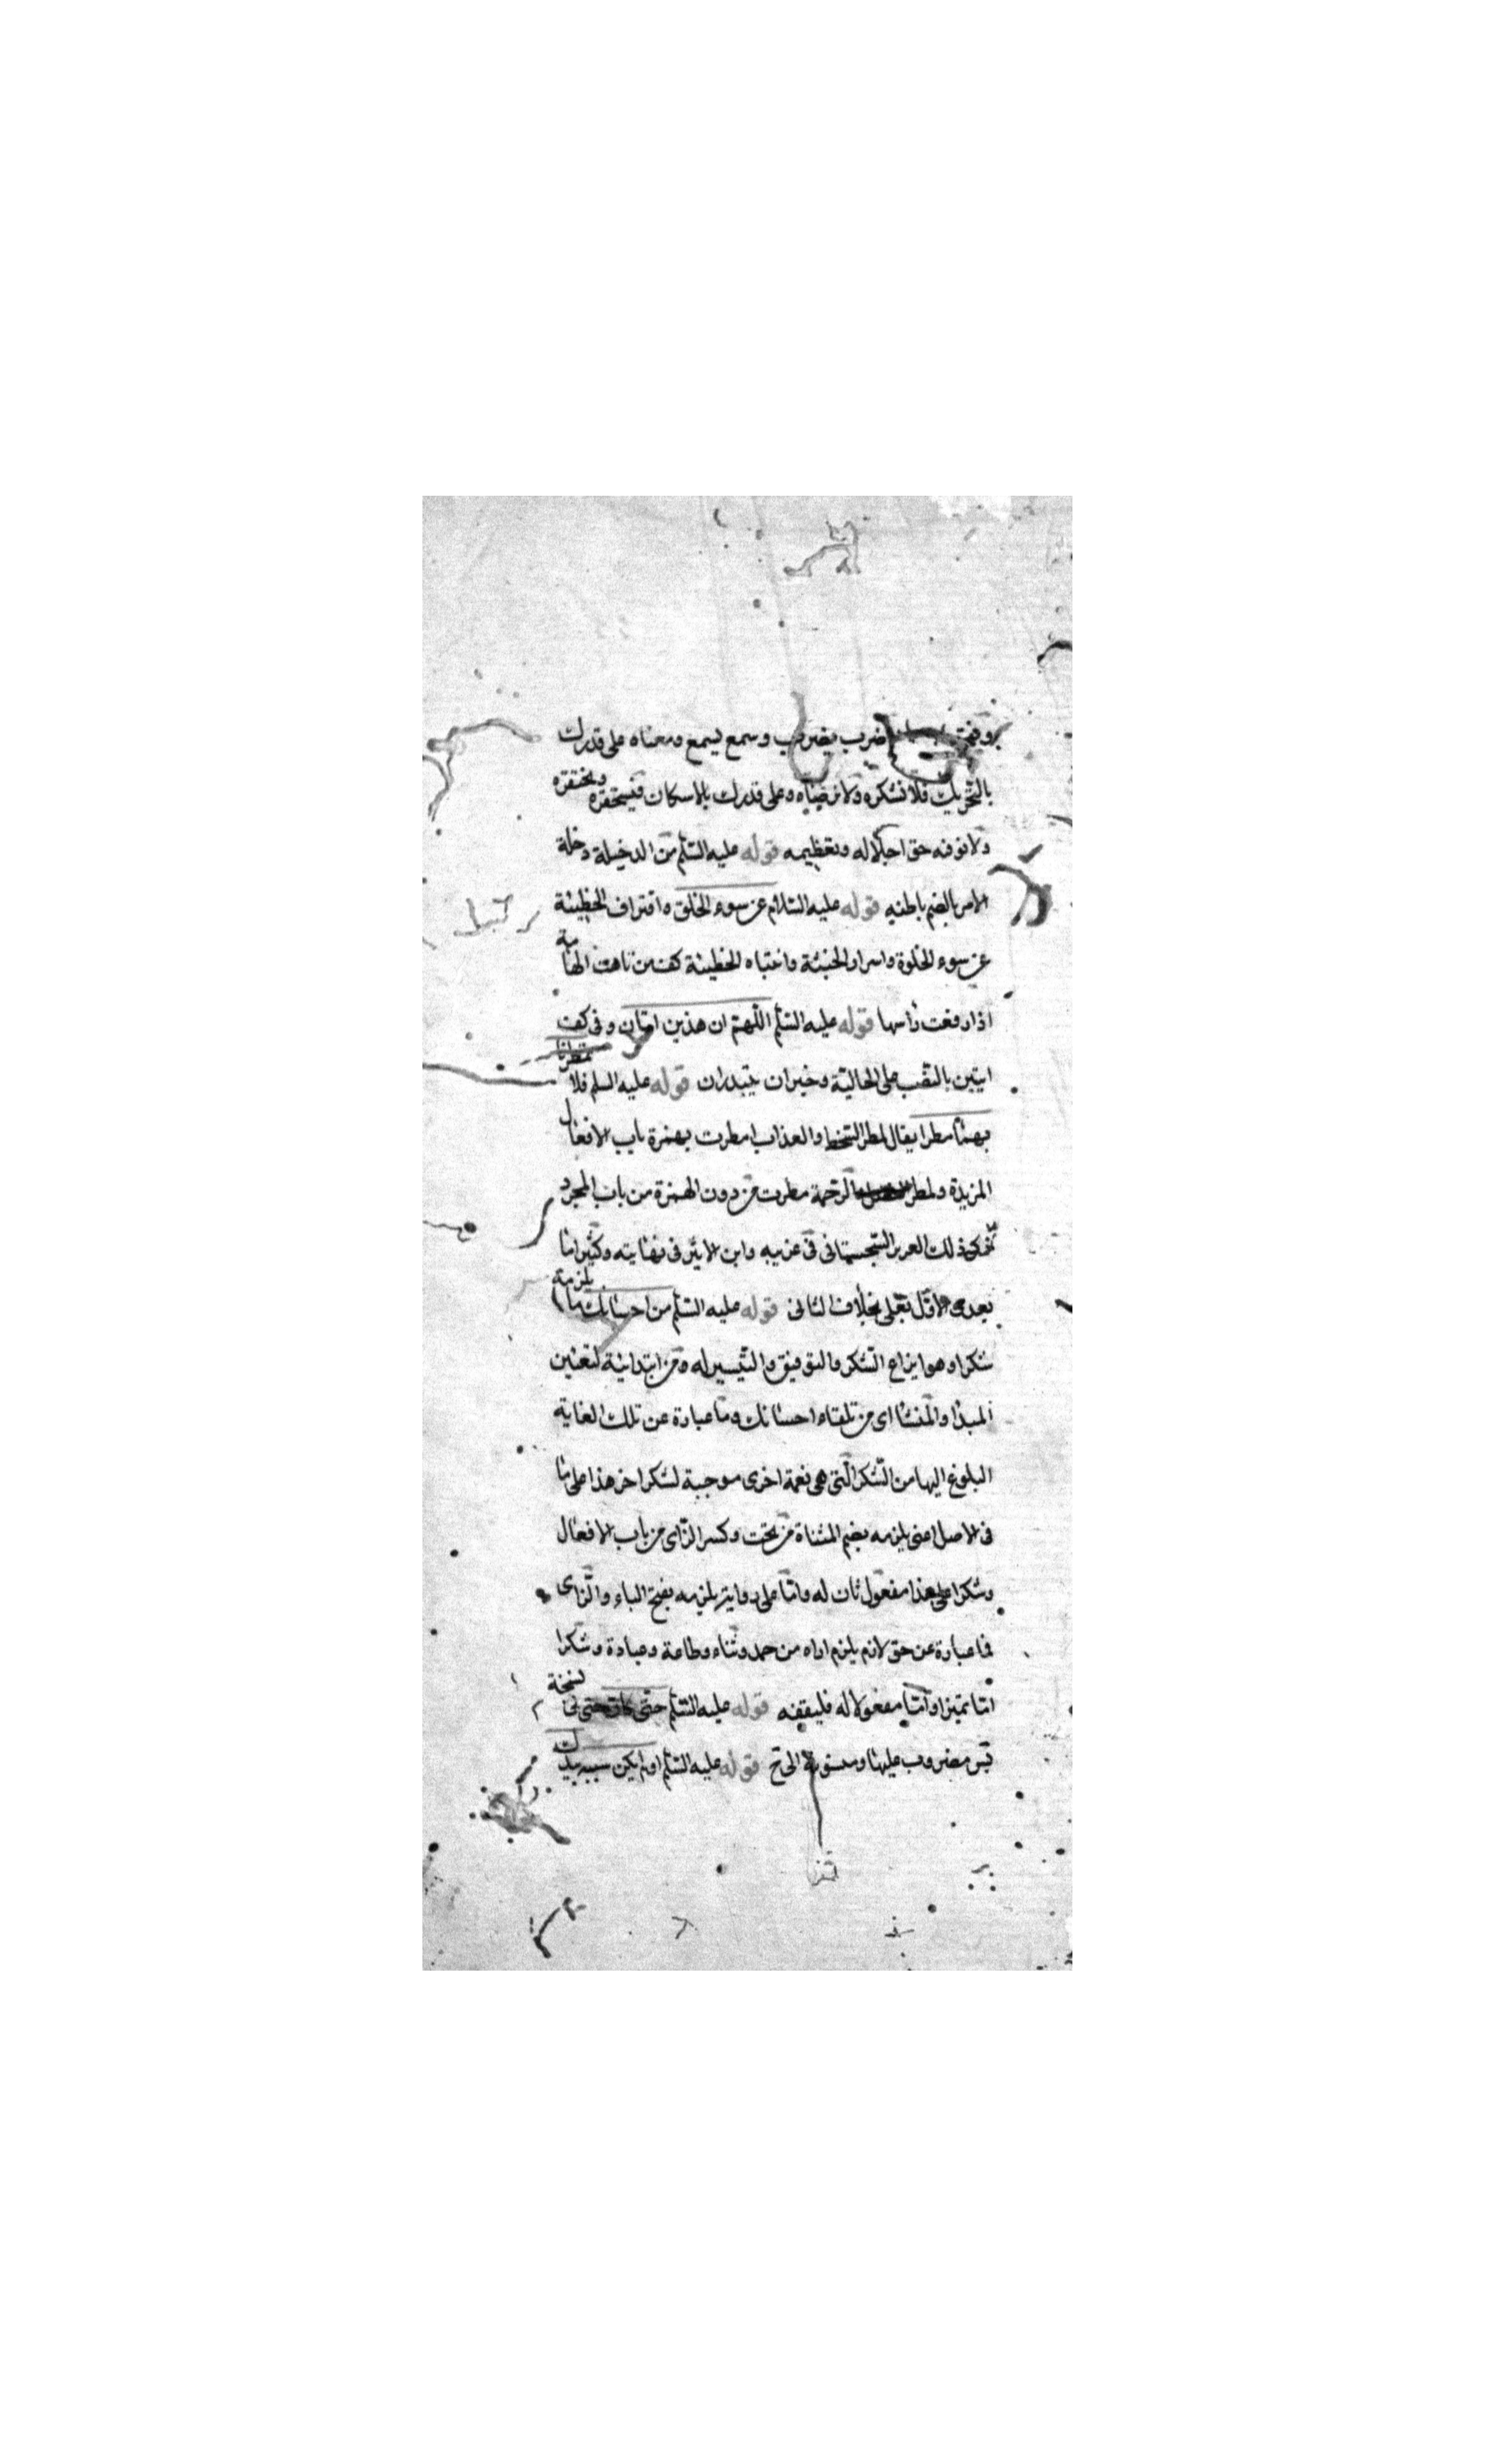 وفتح ضرب يضرب وسمع يسمع ومعناه على قدرك
بالتحريك فلا نشكره ولا نرضيناه وعلى قدرك بالاسكان فنستحقره ويحتقره
ولا نوفه حق اجلاله وتعظيمه قوله عليه السلم من الدخيلة دخلة
الامر بالضم باطنه قوله عليه السلام عن سوء الخلق واقتراف الخطيئة
عن سوء الخلوة واسرار الخبيئة واعتباه الخطيئة كف من تاهت الهامة
اذا رفعت راسها قوله عليه السلم اللهم ان هذين ايتان وفى كف
ايتين بالنصب على الحالية وخبر ان يبتدران قوله عليه السلم فلا تمطرنا
بهما مطر يقال لمطر السخط والعذاب امطرت بهمزة باب الافعال
المزيدة ولمطر الرحمة مطرت من دون الهمزة من باب المجرد
ذلك العزيز السجستانى فى غريبه وابن الاثير فى نهايته وكثيرا ما
يعدى الاول بعلى بخلاف الثانى قوله عليه السلم من احسانك ما يلزمه
شكرا وهو ايزاع الشكر والتوفيق والتيسير له ومن ابتدائية لتعيين
المبدا والمنشا اى من تلقاء احسانك وما عبارة عن تلك الغاية
البلوغ اليها من الشكر التى هى نعمة اخرى موجبة لشكر اخر هذا على ما
فى الاصل اعنى يلزمه بضم المثناة من تحت وكسر الزاى من باب الافعال
وشكرا على هذا مفعول ثان له واما على رواية يلزمه بفتح الياء والزاى
فما عبارة عن حق لازم يلزم اداه من حمد وثناء وطاعة وعبادة وشكرا
اما تميزا واما مفعولا له فليفقه قوله عليه السلم حتى حتى فى نسخة
س مضروب عليها ومنسوبة الى خ قوله عليه السلم اولم يكن سببه بيدك